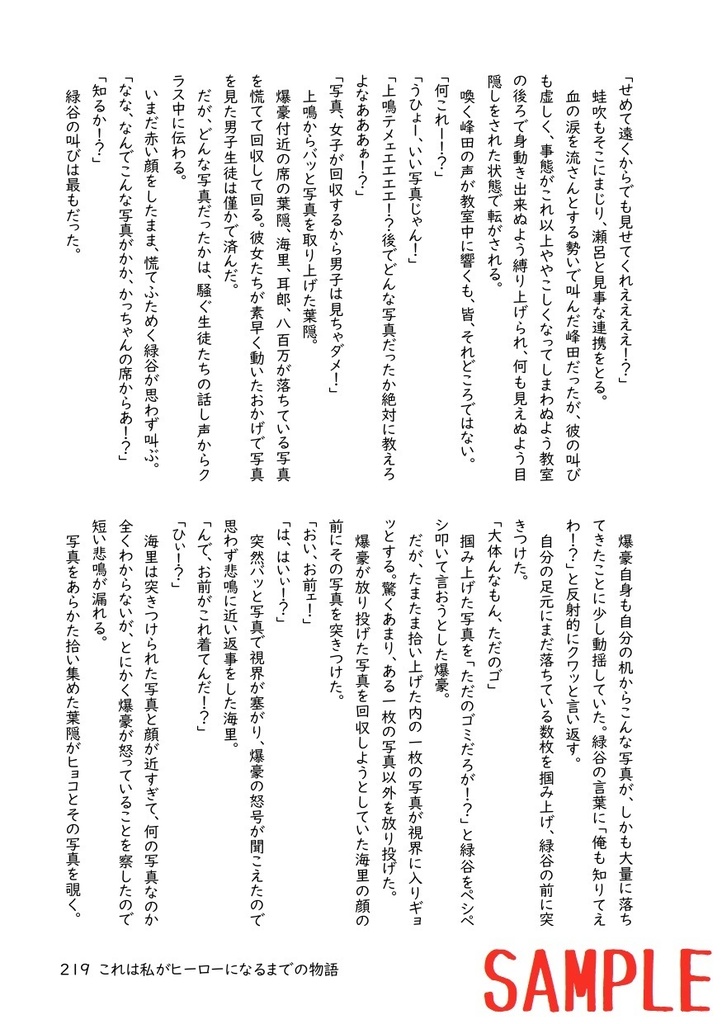 「せめて遠くからでも見せてくれえええ！？」
蛙吹もそこにまじり、瀬呂と見事な連携をとる。
血の涙を流さんとする勢いで叫んだ峰田だったが、彼の叫び
も虚しく、事態がこれ以上ややこしくなってしまわぬよう教室
の後ろで身動き出来ぬよう縛り上げられ、何も見えぬよう目
隠しをされた状態で転がされる。
喚く峰田の声が教室中に響くも、皆、それどころではない。
「何これー！？」
「うひょー、いい写真じゃん！」
「上鳴テメェエエエエ！？後でどんな写真だったか絶対に教えろ
よなあああぁ！？」
「写真、女子が回収するから男子は見ちゃダメ！」
上鳴からパッと写真を取り上げた葉隠。
爆豪付近の席の葉隠、海里、耳郎、八百万が落ちている写真
を慌てて回収して回る。彼女たちが素早く動いたおかげで写真
を見た男子生徒は僅かで済んだ。
だが、どんな写真だったかは、騒ぐ生徒たちの話し声からク
ラス中に伝わる。
いまだ赤い顔をしたまま、慌てふためく緑谷が思わず叫ぶ。
「なな、なんでこんな写真がかか、かっちゃんの席からあ！？」
「知るか！？」
緑谷の叫びは最もだった。
爆豪自身も自分の机からこんな写真が、しかも大量に落ち
てきたことに少し動揺していた。緑谷の言葉に「俺も知りてえ
わ！？」と反射的にクワッと言い返す。
自分の足元にまだ落ちている数枚を掴み上げ、緑谷の前に突
きつけた。
「大体んなもん、ただのゴ」
掴み上げた写真を「ただのゴミだろが！？」と緑谷をペシペ
シ叩いて言おうとした爆豪。
だが、たまたま拾い上げた内の一枚の写真が視界に入りギョ
ッとする。驚くあまり、ある一枚の写真以外を放り投げた。
爆豪が放り投げた写真を回収しようとしていた海里の顔の
前にその写真を突きつけた。
「おい、お前ェ！」
「は、はいぃ！？」
突然パッと写真で視界が塞がり、爆豪の怒号が聞こえたので
思わず悲鳴に近い返事をした海里。
「んで、お前がこれ着てんだ！？」
「ひぃ！？」
海里は突きつけられた写真と顔が近すぎて、何の写真なのか
全くわからないが、とにかく爆豪が怒っていることを察したので
短い悲鳴が漏れる。
写真をあらかた拾い集めた葉隠がヒョコとその写真を覗く。
219 これは私がヒーローになるまでの物語
SAMPLE